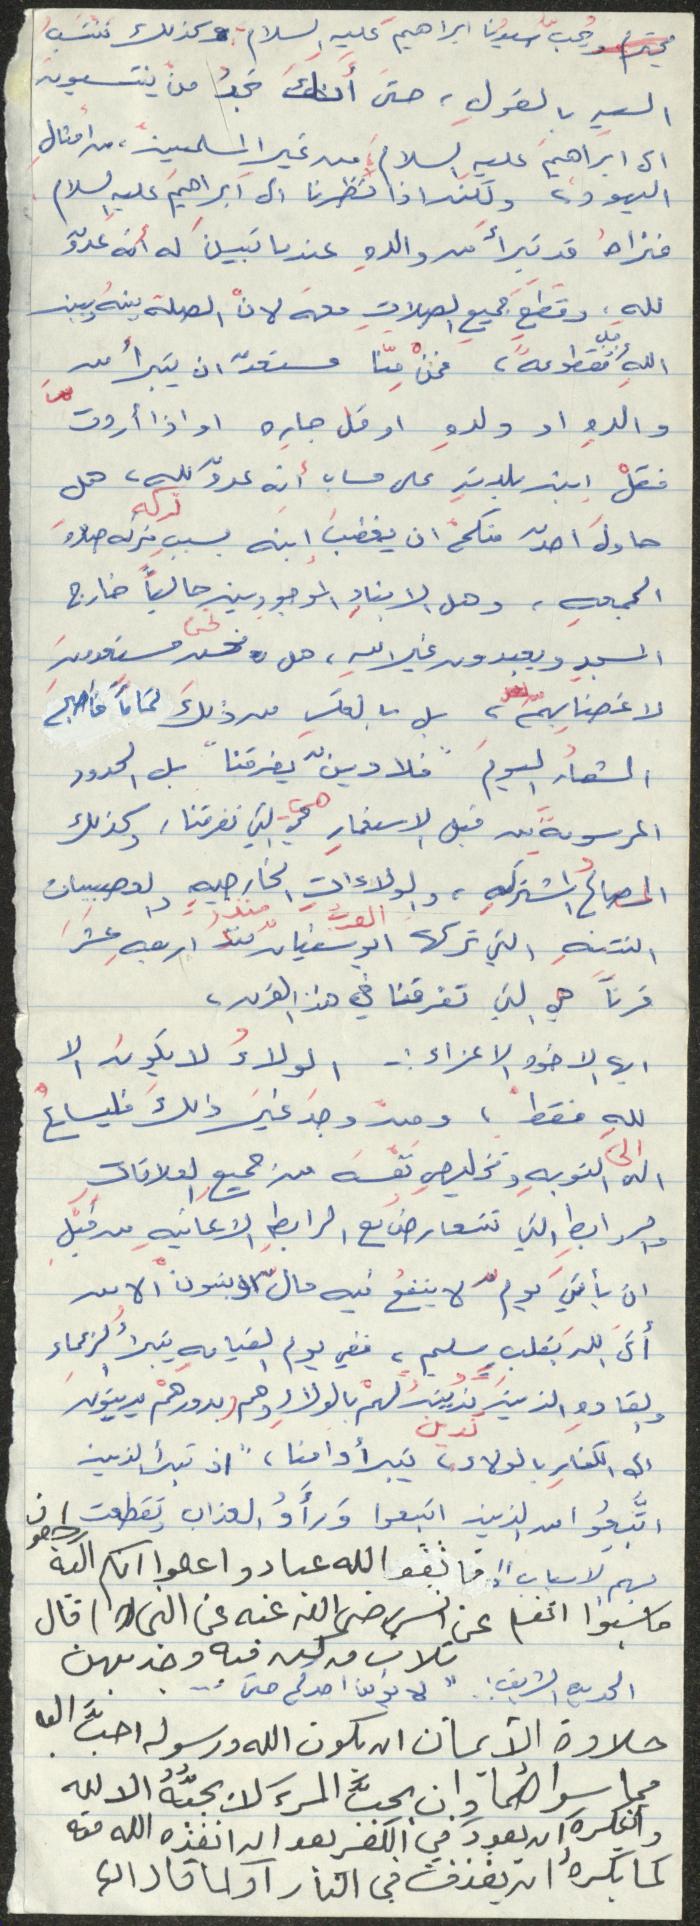 ونحب سيدنا ابراهيم عليه السلام، وكذلك ننتسب
اليه بالقول، حتى أنك تجد من ينتسبون
الى ابراهيم عليه السلام من غير المسلمين، من أمثال
اليهود، ولكن اذا نظرنا الى ابراهيم عليه السلام
فنراه قد تبرأ من والده عندما تبين له أنه عدوّ
لله، وقطع جميع الصلات معه لانّ الصلة بينه وبين
الله مقطوعة، فمن منّا مستعدّ ان يتبرأ من
والده او ولده او قل جاره او اذا أردت
فقلْ ابن بلدته على حساب أنه عدوّ لله، هل
حاول احدٌ منكم ان يغضب ابنه بسبب تركه صلاة
الجمعه، وهل الابناء الموجودين حالياً خارج
المسجد ويعبدون غير الله، هل نحن مستعدون
لاغضابهم، بل بالعكس من ذلك تماماً فأصبح
الشعار اليوم "فلا دينٌ يفرقنا" بل الحدود
المرسومة من قبل الاستعمار هي التي تفرقنا، وكذلك
المصالح المشتركه، والولاءات الخارجيه والعصبيات
النتنه التي تركها ابو سفيان منذ اربعة عشر
قرناً هي التي تفرقنا في هذا القرن،
ايها الاخوه الاعزاء :- الولاء لا يكون الا
لله فقط، ومن وجد غير ذلك فليسارع
الى التوبه وتخليص نفسه من جميع العلاقات
والروابط التي تتعارض مع الرابط الايمانيه من قبل
ان يأتي يوم لا ينفع فيه مال ولا بنون الا من
أتى الله بقلب سليم، ففي يوم القيامه يتبرأ الزعماء
والقاده الذين ندين لهم بالولاء وهم بدورهم يدينون
الى الكفار بالولاء، يتبرأوا منا، "اذ تبرأ الذين
اتُّبِعُوا من الذين اتبعوا وَرَأَوُ العذاب وتقطعت
بهم الاسباب" فاتقو الله عباد واعلموا انكم اليه
عن انس رضي الله عنه عن النبي قال
ثلاث من كن فيه وجد بهن
الحديث الشريف: "لا يؤمن احدكم حتى ...
حلاوة الأيمان ان يكون الله ورسوله احبَّ اليه
مما سواهُما وان يحبَّ المرء لا يحبُّهُ الا لله
وان يكره ان يعود في الكفر بعد ان انقذه الله منه
كما يكره ان يقذف في النار او كما قال